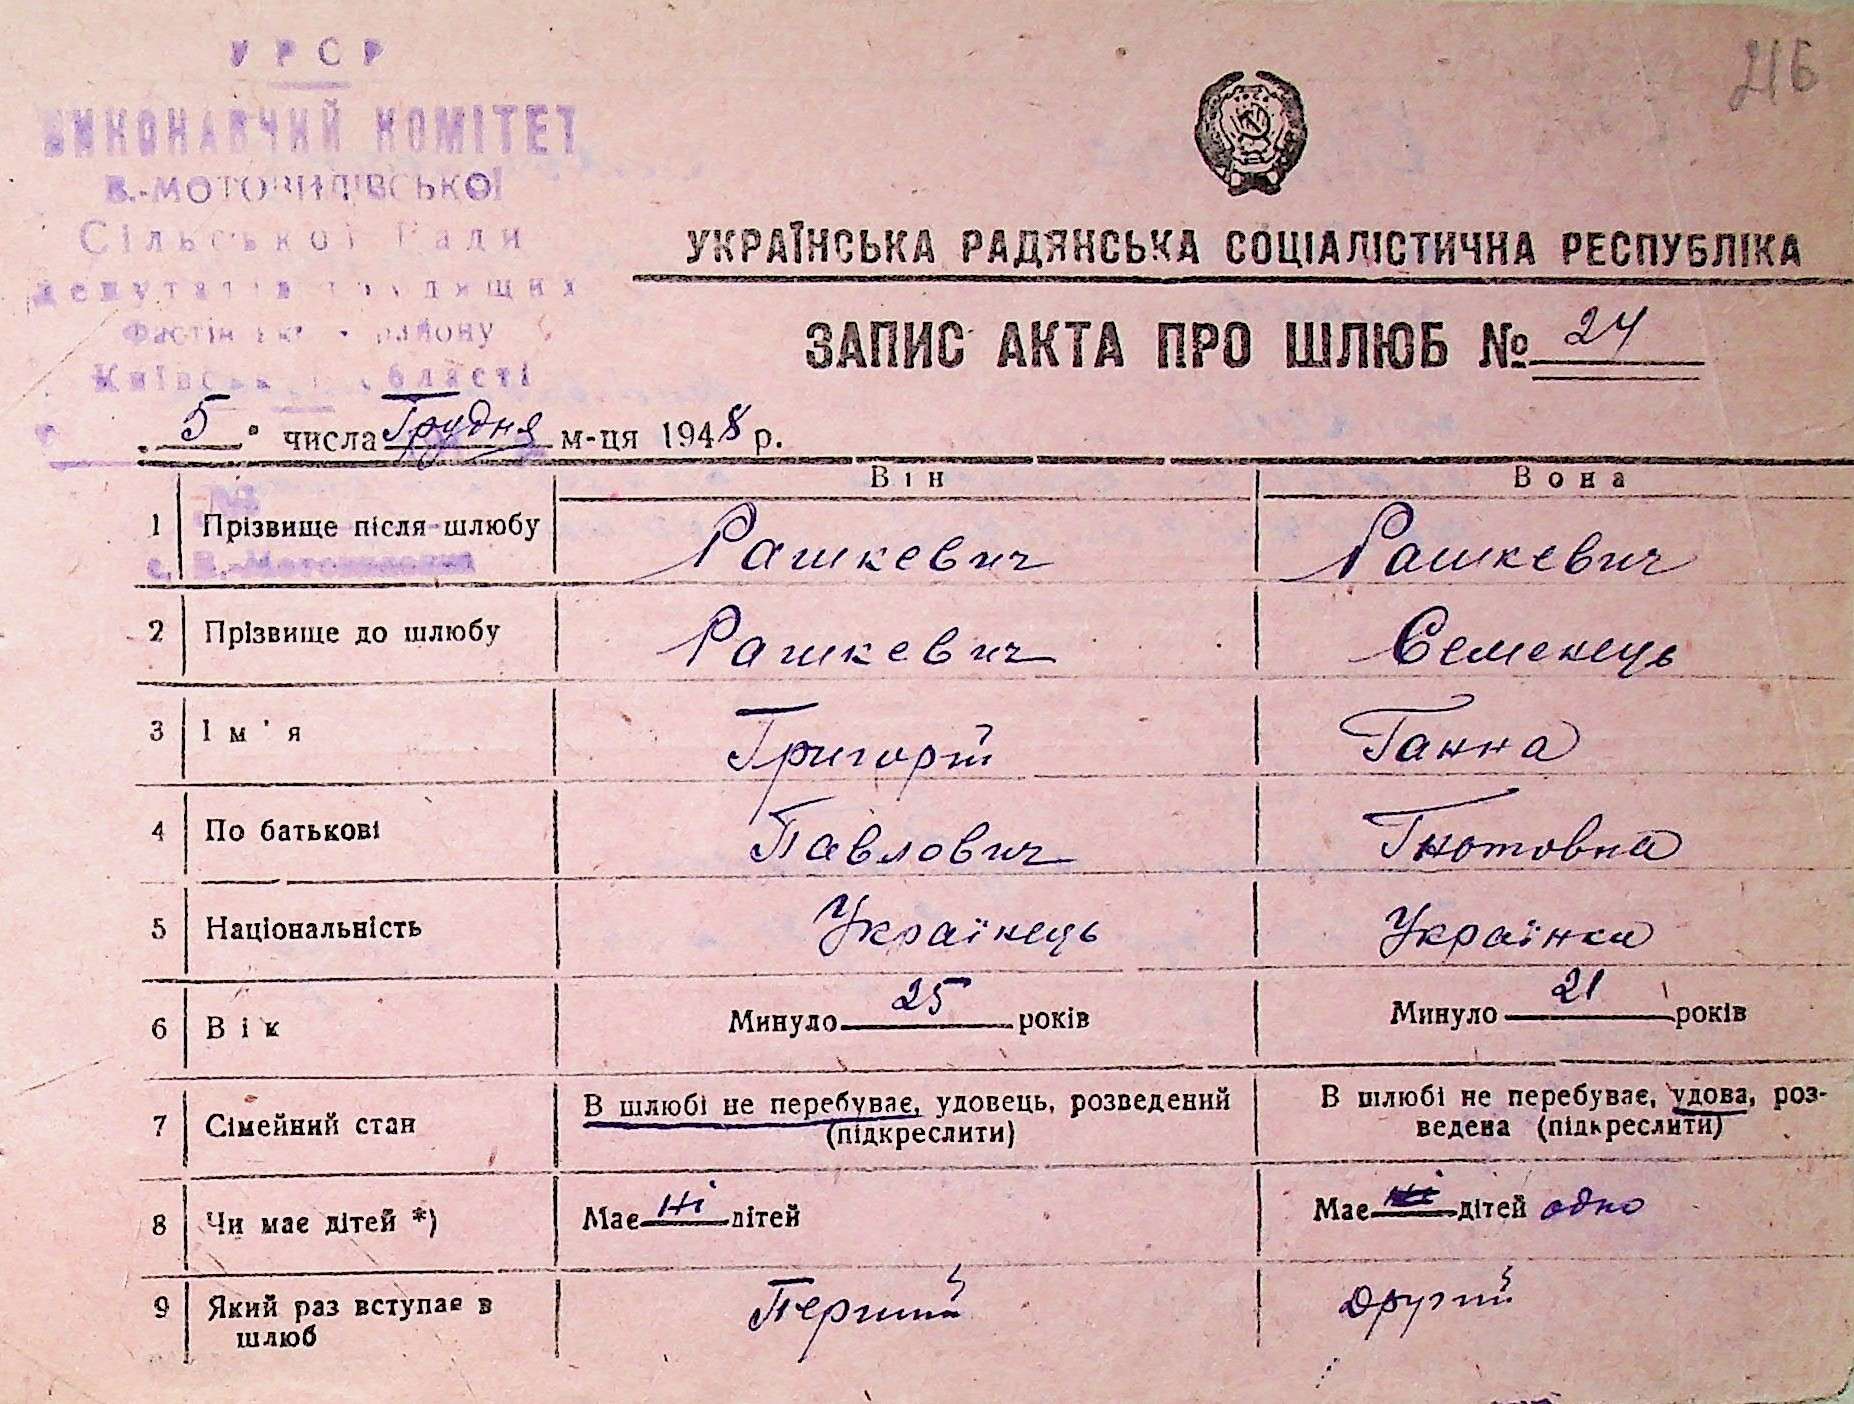 УРСР
ВИКОНАВЧИЙ КОМІТЕТ
В.-МОТОВИЛІВСЬКОЇ
Сільської Ради
депутатів трудящих
району
Київської області
216
УКРАЇНСЬКА РАДЯНСЬКА СОЦІАЛІСТИЧНА РЕСПУБЛІКА
ЗАПИС АКТА ПРО ШЛЮБ № 24
„5" числа Грудня м-ця 1948 р.
Він Вона
1 Прізвище після шлюбу Рашкевич Рашкевич
с. В.-Мотовилівка
2 Прізвище до шлюбу Рашкевич Семенець
3 Ім'я Григорій Ганна
4 По батькові Павлович Гнотовна
5 Національність Українець Українка
6 Вік Минуло 25 років Минуло 21 років
7 Сімейний стан В шлюбі не перебуває, удовець, розведений (підкреслити) В шлюбі не перебуває, удова, роз-
ведена (підкреслити)
8 Чи має дітей *) Має ні дітей Має ні дітей одно
9 Який раз вступає в Перший Другий
шлюб